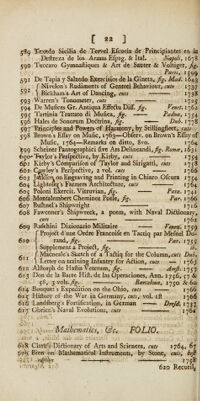 [ 22 ]
589 Texedo Sicilia de Torvel Escuela de Principiantes en
Destreza de los Armas Espag. & Ital. Napoli, 1678
590 Toccaro Gymnastiques & Art de Sauter & Voltiger, fig.
Paris, 1599
591 De Tapia y Salzedo Exercisios de la Gineta, fig. Mad. 1643
592 Nivelon's Rudiments of Genteel Behaviour, cuts 1737
Bickham's Art of Dancing, cuts 1738
593 Warren's Tonometer, cuts 1725
594 De Muficis Gr. Antiqua Effectu Diff. fig.
595 Tartinia Trattato di Musica, fig. Padua, 1754
596 Hales de Sonorum Doctrina, fig. Dub. 1778
597 Principles and Powers of Harmony, by Stillingfleet, cuts
598 Brown's Essay on Music, 1763—Obser. on Brown's Essay of
Music, 1764—Remarks on ditto, 8vo. 1764
599 Scheiner Pantographice sive Ars Delineandi, fig. Rome, 1631
600 Taylor's Perspective, by Kirby, cuts 1754
601 Kirby's Comparison of Taylor and Sirigatti, cuts
602 Cowley's Perspective, 2 vol. cuts 1766
603 Jackson on Engraving and Printing in Chiaro Oscura
604 Lightoler's Farmers Architecture, cuts 1764
605 Poloni Exercit. Vitruvian, fig. Pata.
606 Montalembert Cheminée Poele, fig. Par. 1766
607 Bushnel's Shipwright
608 Fawconer's Shipwreck, a poem, with Naval Dictionary,
cuts
609 Ruschini Dizionario Militare
610 Project d'une Ordre Francoise en Tactiq par Mesnil Du-
rand, fig. Par. 1755
Supplement a Projet, fig.
611 Macteale's Sketch of a Tactiq for the Column, cuts
Letter on training Infantry for Action, cuts
612 Althorph de Hastis Veterum, fig.
613 Don de la Barte Hist. de las Operaciones, Ann. 1736, 57 &
58, 3 vols. fig. Barcelona, 1750 & 60
614 Bouquet's Expedition on the Ohio, cuts 1766
615 History of the War in Germany, cuts, vol. 1st 1766
616 Landsberg's Fortification, in German
617 Obrien's Naval Evolutions, cuts 1762
Mathematics, &c. FOLIO.
618 Clark's Dictionary of Arts and Sciences, cuts 1764, 67
619 Bion on Mathematical Instruments, by Stone, cuts,
1758
620 Recueil,